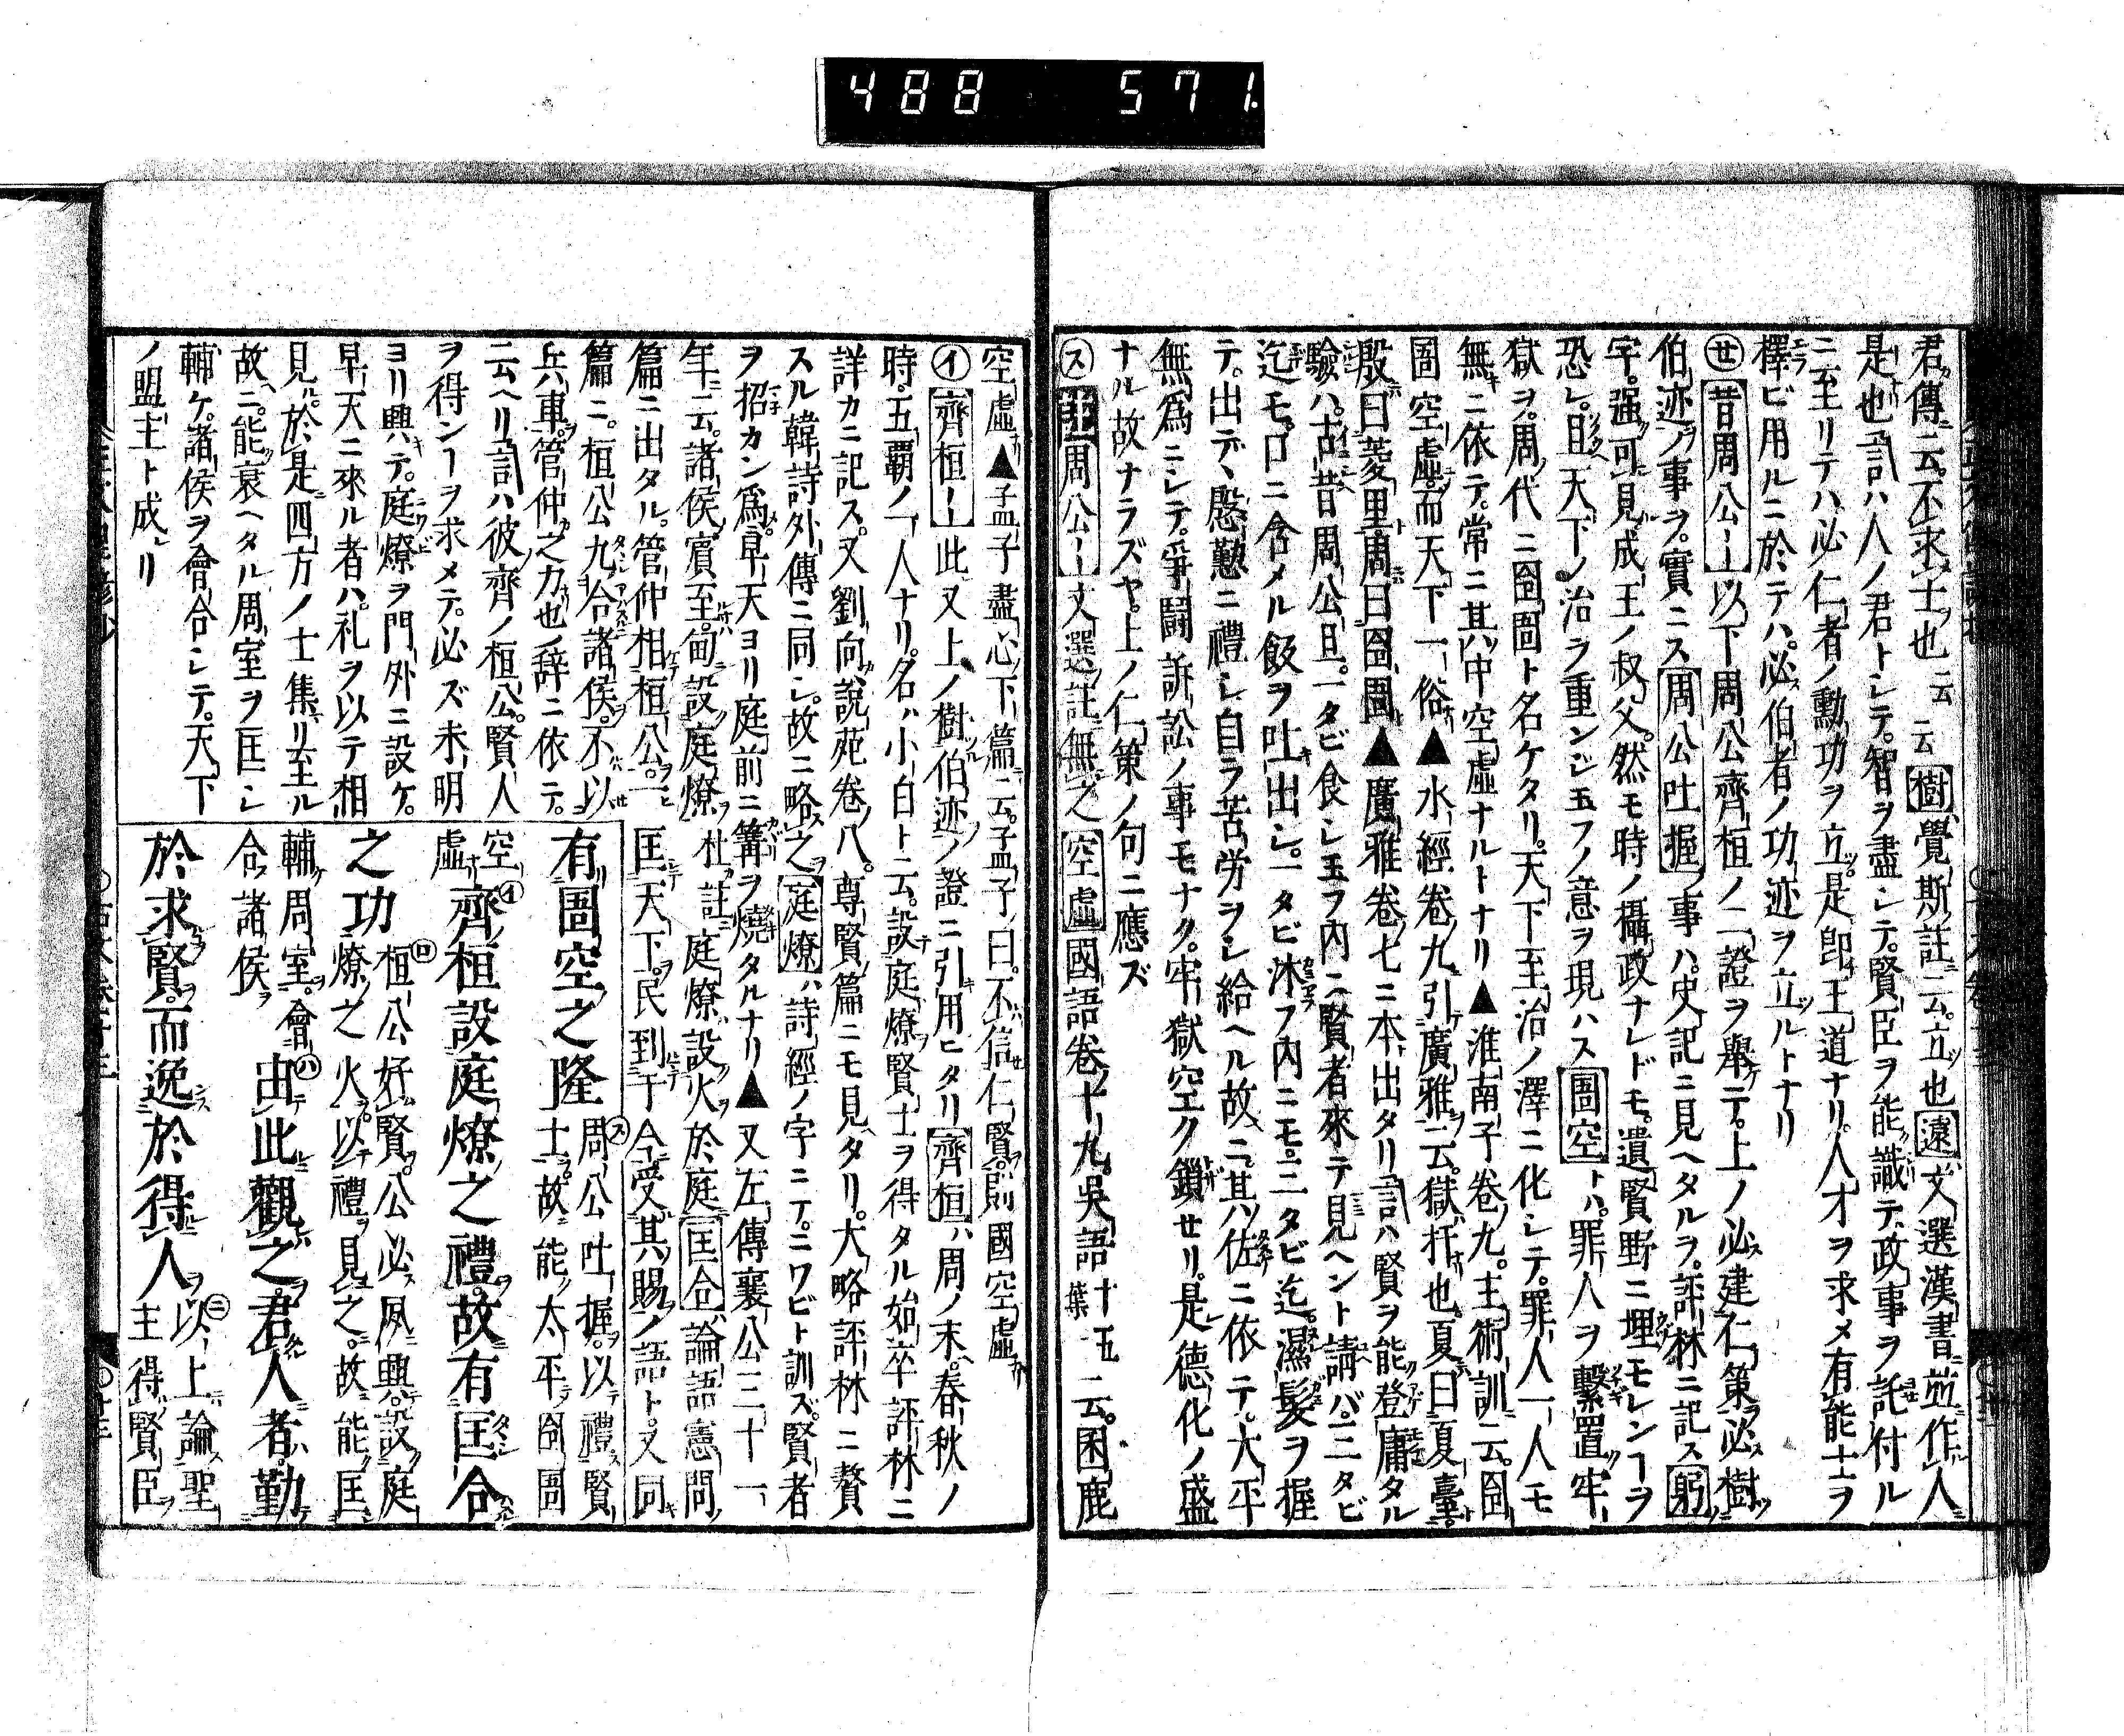 488 571.
君傳云不求士也云云樹覺斯註云立也遠文選漢書並作人
是也言ハ人ノ君トシテ智ヲ盡シテ賢臣ヲ能識テ政事ヲ託付ル
ニ至リテハ必仁者ノ勳功ヲ立是即王道ナリ人才ヲ求メ有能士ヲ
擇ビ用ルニ於テハ必伯者ノ功迹ヲ立ルトナリ
㋝昔周公ーー以下周公齊桓ノ二證ヲ舉テ上ノ必建仁策必樹
伯迹ノ事ヲ實ニス周公吐握ノ事ハ史記ニ見ヘタルヲ評林ニ記ス躬
字强可見成王ノ叔父然モ時ノ攝政ナレドモ遺賢野ニ埋モレンーヲ
恐レ且天下ノ治ヲ重ンジ玉フノ意ヲ現ハス圄空トハ罪人ヲ繫置牢
獄ヲ周代ニ囹圄ト名ケタリ天下至治ノ澤ニ化シテ罪人一人モ
無ニ依テ常ニ其中空虛ナルトナリ▲淮南子卷九主術訓云囹
圄空虛而天下一俗▲水經卷九引廣雅云獄犴也夏曰夏臺
殷曰羑里周曰囹圄▲廣雅卷七ニ本出タリ言ハ賢ヲ能登庸タル
驗ハ古昔周公旦一タビ食シ玉フ內ニ賢者來テ見ヘント請バ三タビ
迄モ口ニ含メル飯ヲ吐出シ一タビ沐フ內ニモ三タビ迄濕髮ヲ握
テ出デヽ慇懃ニ禮シ自ラ苦労ヲシ給ヘル故ニ其佐ニ依テ大平
無爲ニシテ爭鬪訴訟ノ事モナク牢獄空ク鎖セリ是德化ノ盛
ナル故ナラズヤ上ノ仁策ノ句ニ應ズ
㋜周公ーー文選註無之空虛國語卷十九吳語十五葉云囷鹿
空虛▲孟子盡心下篇云孟子曰不信仁賢則國空虛
㋑齊桓ーー此又上ノ樹伯迹ノ證ニ引用ヒタリ齊桓ハ周ノ末春秋ノ
時五覇ノ一人ナリ名ハ小白ト云設庭燎賢士ヲ得タル始卒評林ニ
詳カニ記ス又劉向說苑卷八尊賢篇ニモ見タリ大略評林ニ贅
スル韓詩外傳ニ同シ故ニ略之庭燎ハ詩經ノ字ニテニワビト訓ズ賢者
ヲ招カン爲早天ヨリ庭前ニ篝ヲ燒タルナリ▲又左傳襄公三十一
年云諸侯賓至甸設庭燎杜註庭燎設火於庭匡合論語憲問
篇ニ出タル管仲相桓公一匡天下民到于今受其賜ノ語ト又同
篇ニ桓公九合諸侯不以
兵車管仲之力也ノ辞ニ依テ
云ヘリ言ハ彼齊ノ桓公賢人
ヲ得ンーヲ求メテ必ズ未明
ヨリ興テ庭燎ヲ門外ニ設ケ
早天ニ來ル者ハ礼ヲ以テ相
見ル於是四方ノ士集リ至ル
故ニ能衰ヘタル周室ヲ匡シ
輔ケ諸侯ヲ會合シテ天下
ノ盟主ト成レリ
有圄空之隆㋜周公吐握以禮賢士故能太平囹圄
空虛㋑齊桓設庭燎之禮故有匡合
之功㋺桓公好賢公必夙興設庭燎之火以禮見之故能匡
輔周室會合諸侯㋩由此觀之君人者勤
於求賢而逸於得人㋥以上論聖主得賢臣